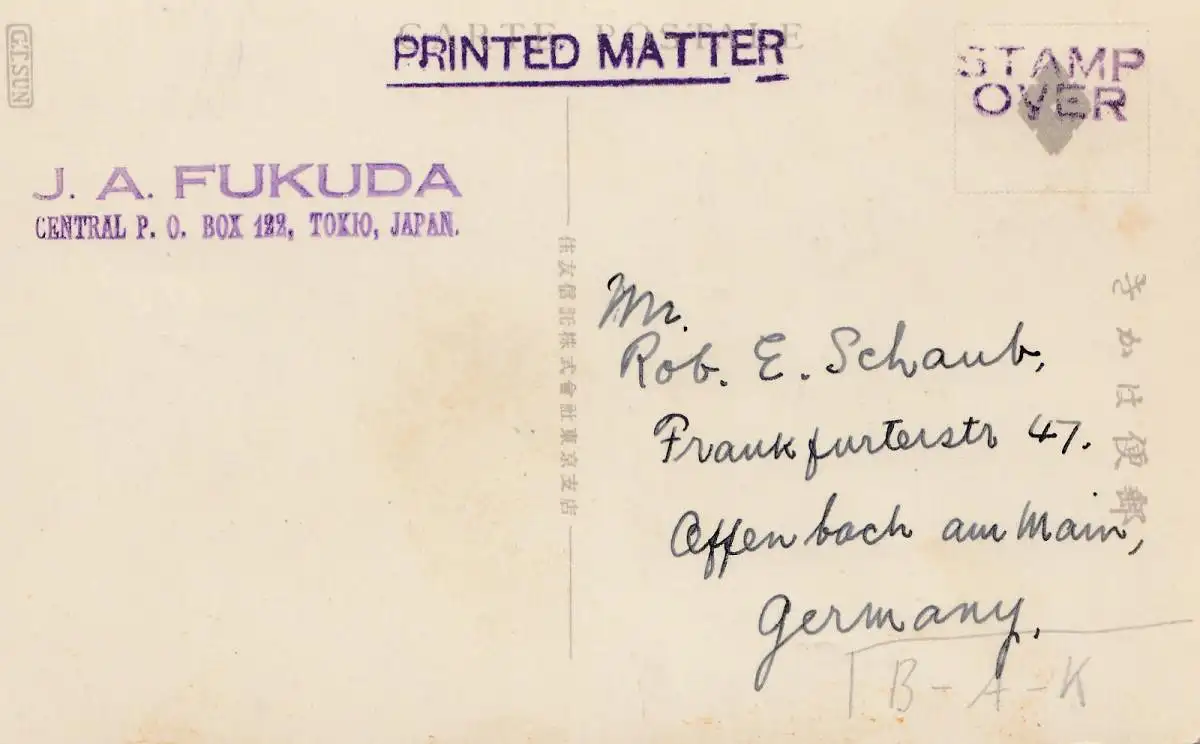 CARTE POSTALE
PRINTED MATTER
G.T.SUN
STAMP
OVER
J. A. FUKUDA
CENTRAL P. O. BOX 122, TOKIO, JAPAN.
住友信託株式會社東京支店
きかは便郵
Mr.
Rob. E. Schaub,
Frankfurterstr 47.
Offenbach am Main,
Germany.
B-A-K